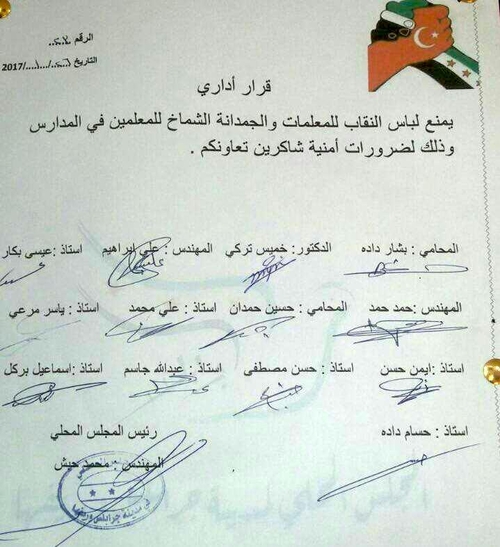 الرقم
التاريخ / /2017
قرار أداري
يمنع لباس النقاب للمعلمات والجمدانة الشماخ للمعلمين في المدارس
وذلك لضرورات أمنية شاكرين تعاونكم .
المحامي : بشار داده الدكتور : خميس تركي المهندس : علي ابراهيم استاذ : عيسى بكار
المهندس : حمد حمد المحامي : حسين حمدان استاذ : علي محمد استاذ : ياسر مرعي
استاذ : ايمن حسن استاذ : حسن مصطفى استاذ : عبدالله جاسم استاذ : اسماعيل بركل
استاذ : حسام داده رئيس المجلس المحلي
المهندس : محمد حبش
في مدينة جرابلس وريفها
المجلس المحلي لمدينة جرابلس وريفها